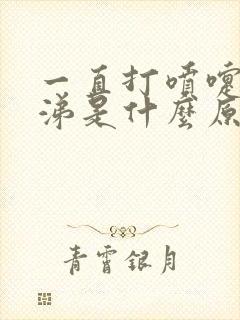 一直打喷嚏
涕是什麼原
青霄银月